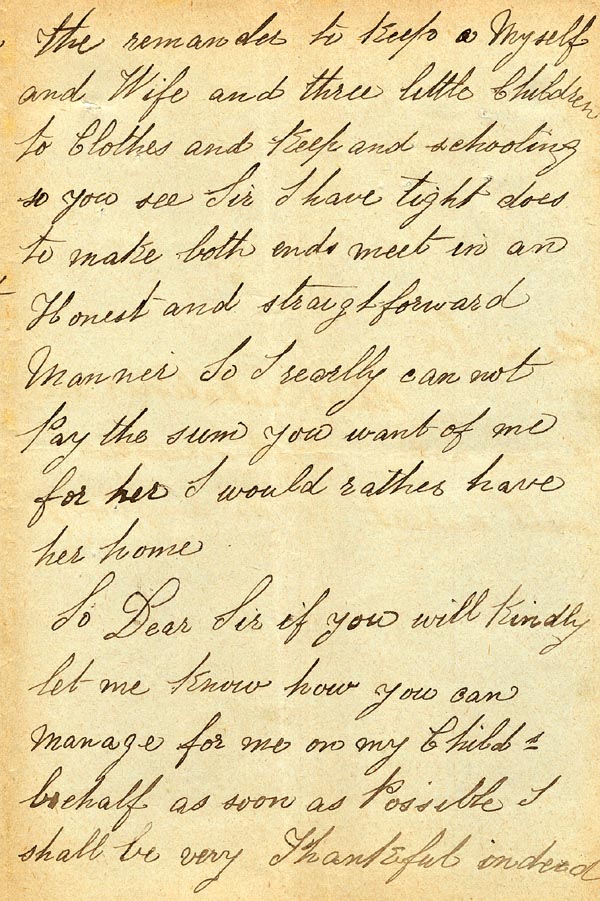 the remander to Keep a Myself
and Wife and three little Children
to Clothes and Keep and schooling
so you see Sir I have tight does
to make both ends meet in an
Honest and straigtforward
Manner So I rearlly can not
Pay the sum you want of me
for her I would rather have
her home
So Dear Sir if you will Kindly
let me Know how you can
Manage for me on my Child's
behalf as soon as Possible I
shall be very Thankful indeed